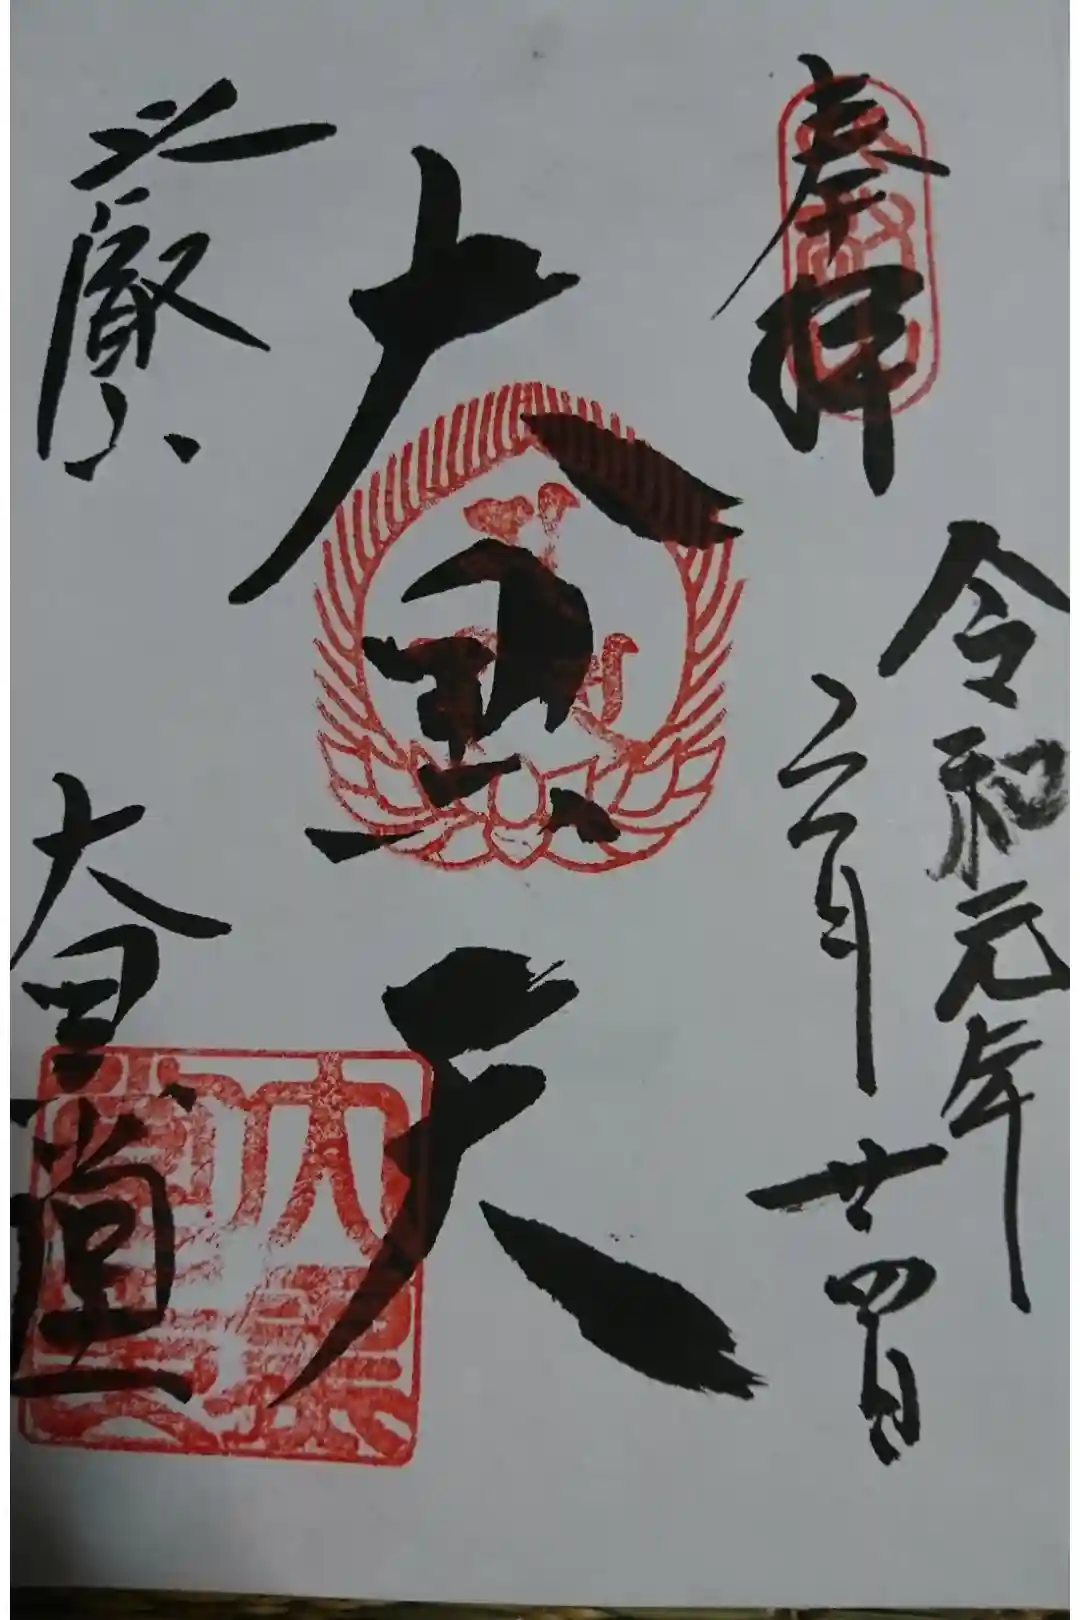 奉拝
令和元年
六月廿四日
大黒天
大黒堂